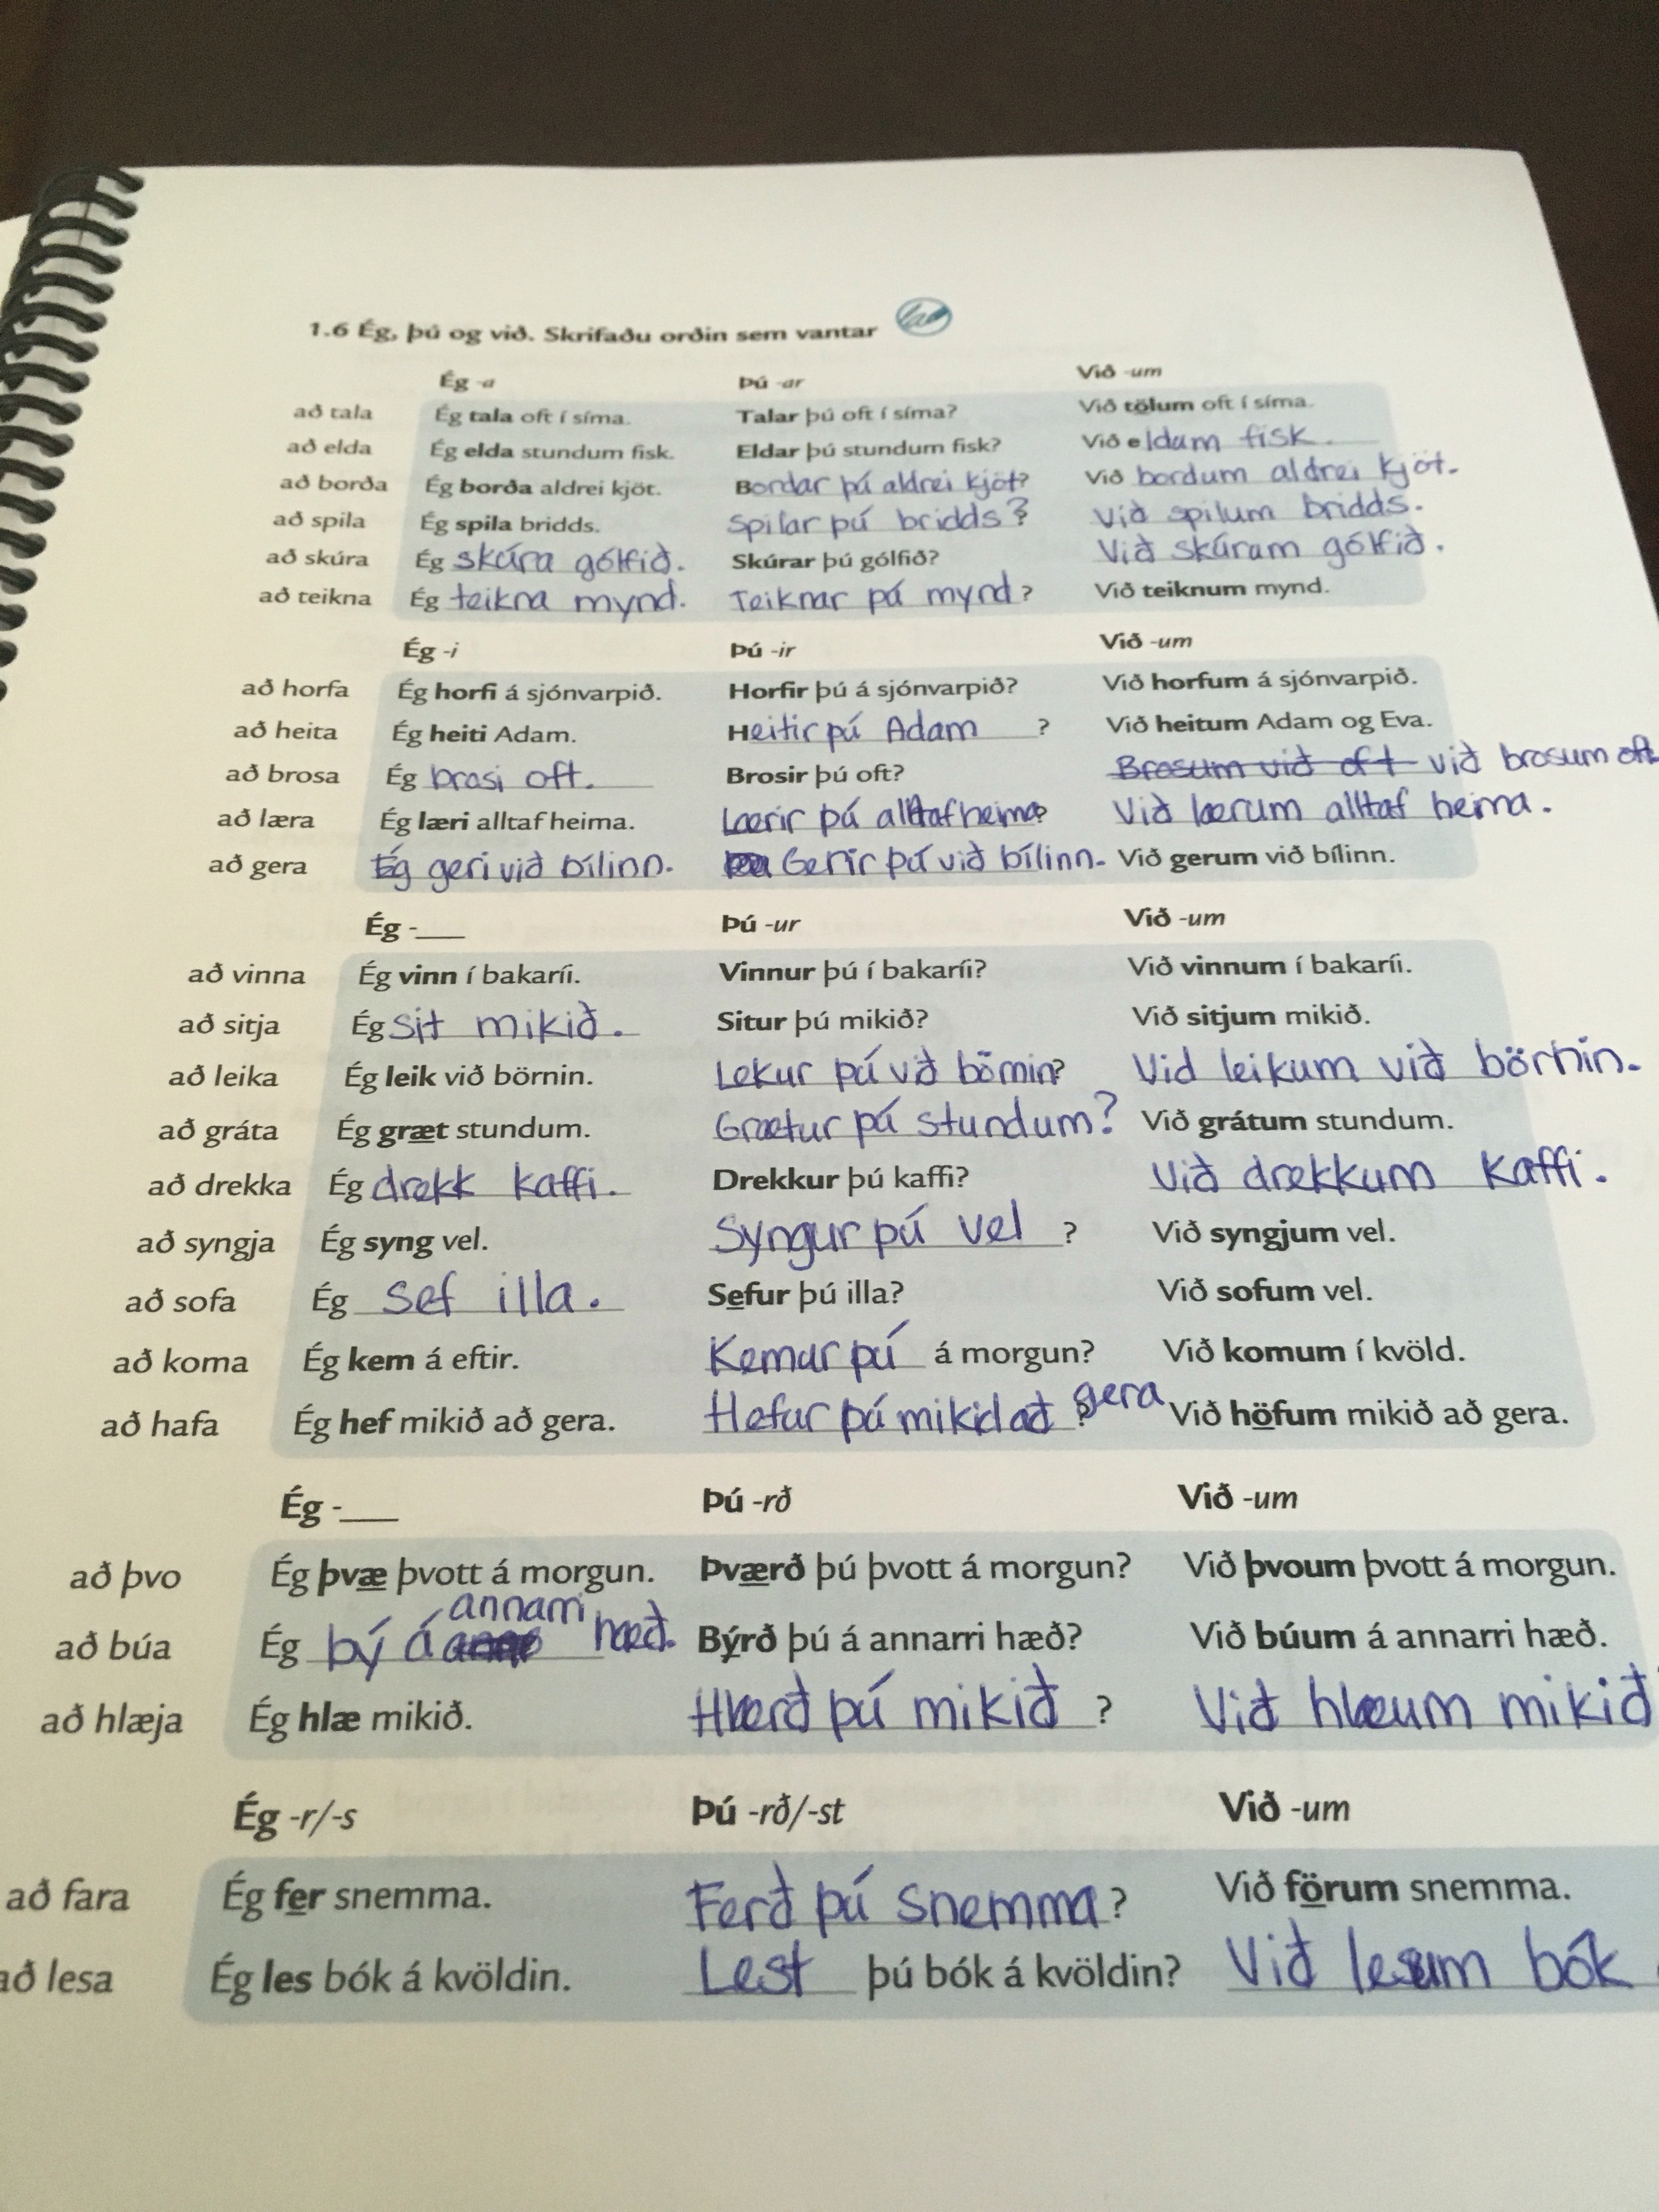 1.6 Ég, þú og við. Skrifaðu orðin sem vantar
Ég -a Þú -ar Við -um
að tala Ég tala oft í síma. Talar þú oft í síma? Við tölum oft í síma.
að elda Ég elda stundum fisk. Eldar þú stundum fisk? Við eldum fisk.
að borða Ég borða aldrei kjöt. Bordar þú aldrei kjöt? Við bordum aldrei kjöt.
að spila Ég spila bridds. Spilar þú bridds? Við spilum bridds.
að skúra Ég skúra gólfið. Skúrar þú gólfið? Við skúrum gólfið.
að teikna Ég teikna mynd. Teiknar þú mynd? Við teiknum mynd.
Ég -i Þú -ir Við -um
að horfa Ég horfi á sjónvarpið. Horfir þú á sjónvarpið? Við horfum á sjónvarpið.
að heita Ég heiti Adam. Heitir þú Adam ? Við heitum Adam og Eva.
að brosa Ég brosi oft. Brosir þú oft? Brosum við oft við brosum oft
að læra Ég læri alltaf heima. Lærir þú alltaf heima? Við lærum alltaf heima.
að gera Ég geri við bílinn. Gerir þú við bílinn. Við gerum við bílinn.
Ég -___ Þú -ur Við -um
að vinna Ég vinn í bakaríi. Vinnur þú í bakaríi? Við vinnum í bakaríi.
að sitja Ég sit mikið. Situr þú mikið? Við sitjum mikið.
að leika Ég leik við börnin. Lekur þú við börnin? Vid leikum við börnin.
að gráta Ég græt stundum. Grætur þú stundum? Við grátum stundum.
að drekka Ég drekk kaffi. Drekkur þú kaffi? Við drekkum kaffi.
að syngja Ég syng vel. Syngur þú vel ? Við syngjum vel.
að sofa Ég sef illa. Sefur þú illa? Við sofum vel.
að koma Ég kem á eftir. Kemur þú á morgun? Við komum í kvöld.
að hafa Ég hef mikið að gera. Hefur þú mikid að gera ? Við höfum mikið að gera.
Ég -___ Þú -rð Við -um
að þvo Ég þvæ þvott á morgun. Þværð þú þvott á morgun? Við þvoum þvott á morgun.
að búa Ég bý á annarri hæð. Býrð þú á annarri hæð? Við búum á annarri hæð.
að hlæja Ég hlæ mikið. Hlærð þú mikið ? Við hlæum mikið
Ég -r/-s Þú -rð/-st Við -um
að fara Ég fer snemma. Ferð þú snemma ? Við förum snemma.
að lesa Ég les bók á kvöldin. Lest þú bók á kvöldin? Við lesum bók